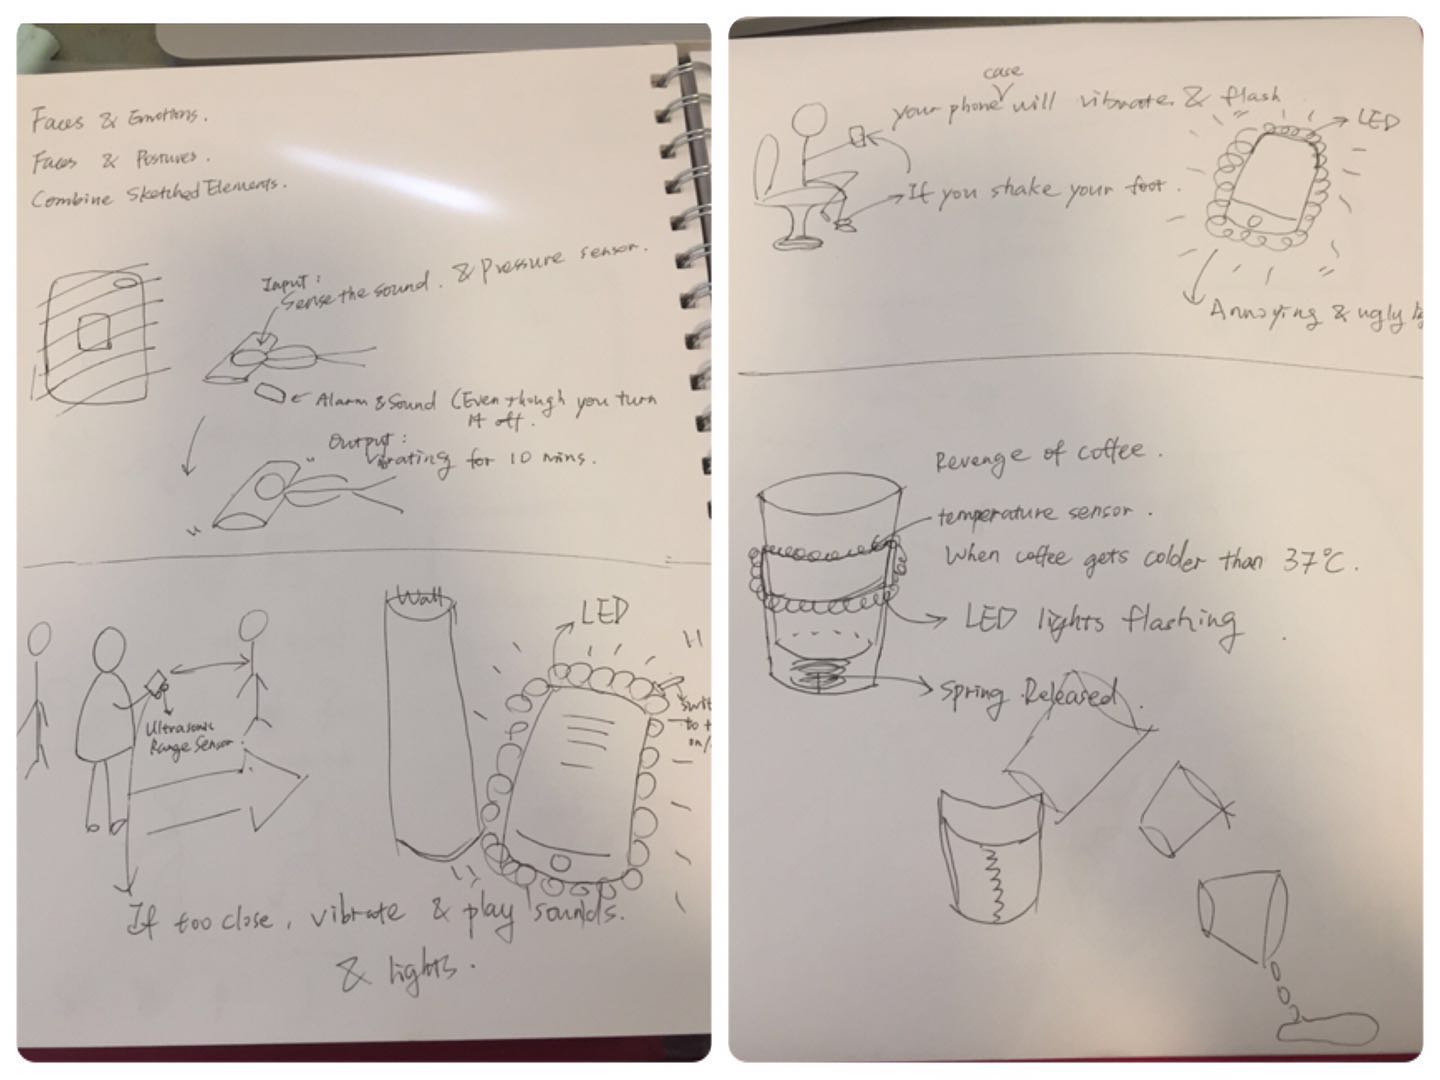 Faces & Emotions.
Faces & Postures.
Combine Sketched Elements.
Input:
Sense the sound. & Pressure sensor.
Alarm & Sound (Even though you turn
it off.
Output:
vibrating for 10 mins.
Wall
LED
Ultrasonic
Range Sensor.
to
on/
If too close, vibrate & play sounds.
& lights.
case
your phone will vibrate & flash
LED
If you shake your foot.
Annoying & ugly
Revenge of coffee.
temperature sensor.
When coffee gets colder than 37°C.
LED lights flashing
Spring Released.